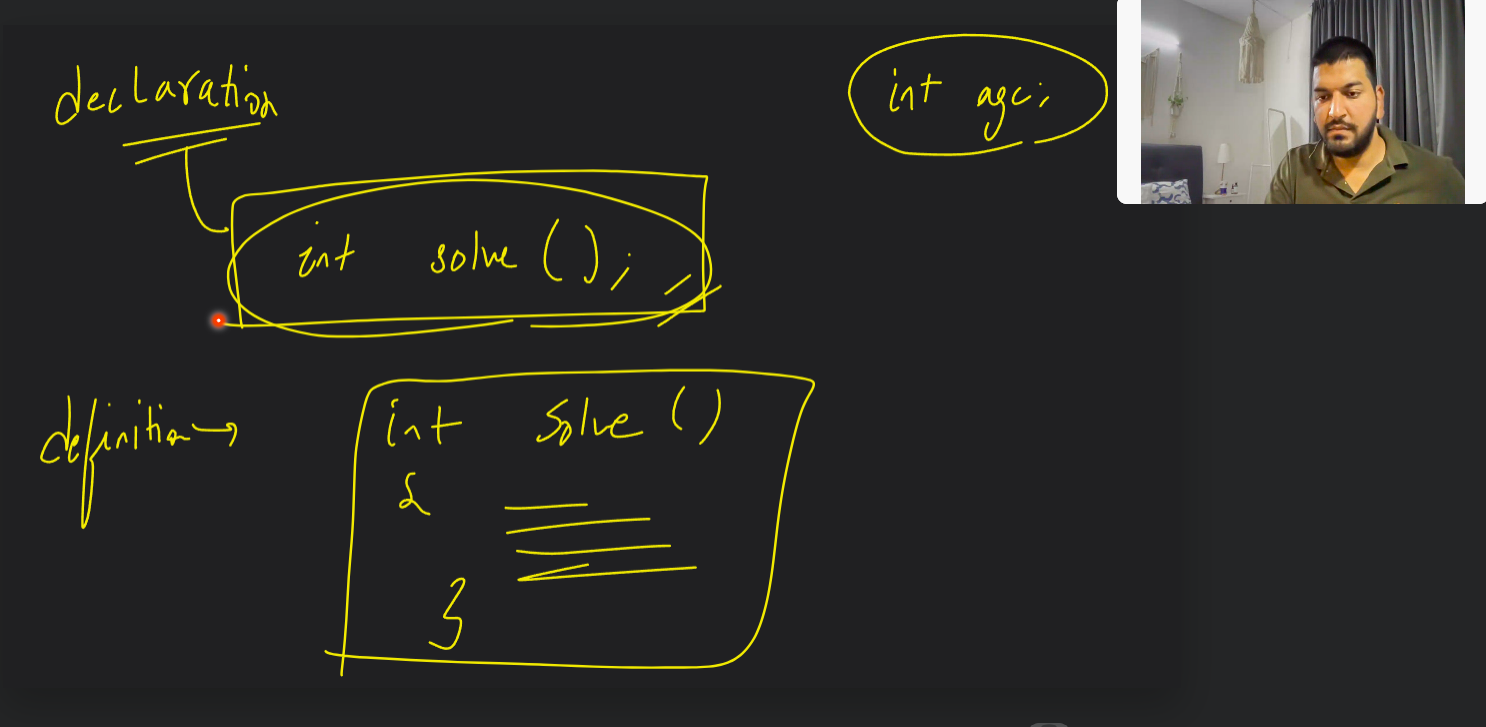 declaration
int age;
int solve();
definition →
int solve()
{
}